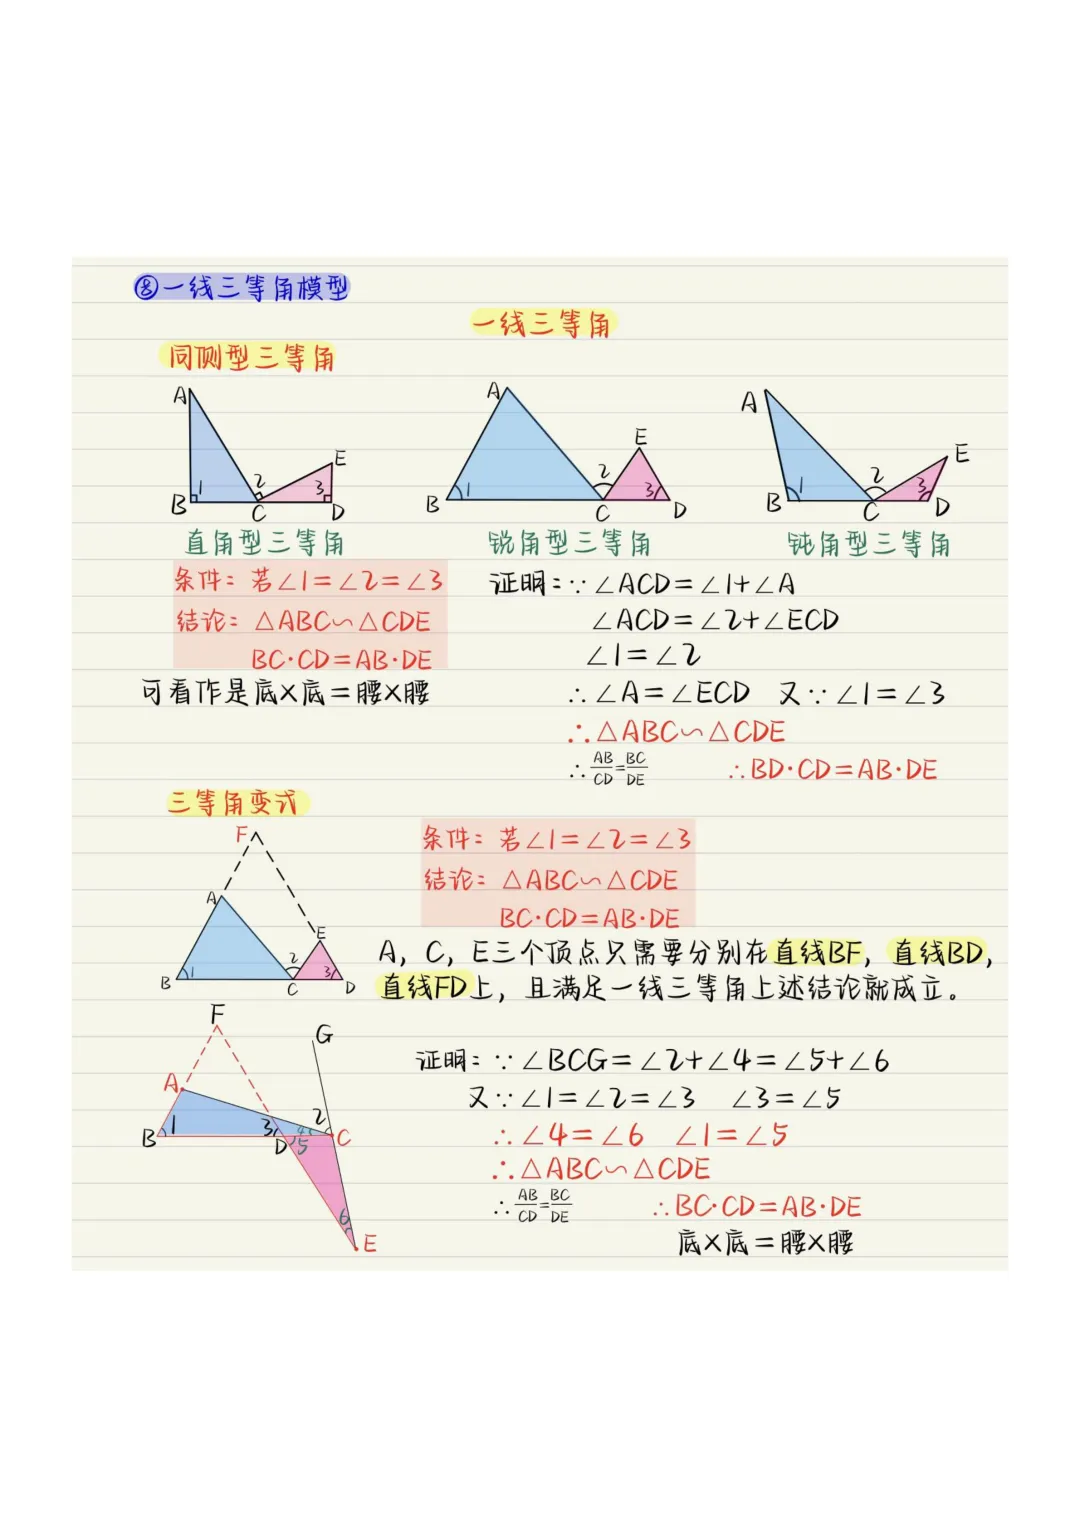 ⑧一线三等角模型
一线三等角
同侧型三等角
A
B
1
2
C
3
E
D
A
B
1
2
C
3
E
D
A
B
1
2
C
3
E
D
直角型三等角
锐角型三等角
钝角型三等角
条件：若∠1=∠2=∠3
结论：△ABC∽△CDE
BC·CD=AB·DE
可看作是底×底=腰×腰
证明：∵∠ACD=∠1+∠A
∠ACD=∠2+∠ECD
∠1=∠2
∴∠A=∠ECD 又∵∠1=∠3
∴△ABC∽△CDE
∴AB/CD=BC/DE ∴BD·CD=AB·DE
三等角变式
F
A
B
1
2
C
3
E
D
条件：若∠1=∠2=∠3
结论：△ABC∽△CDE
BC·CD=AB·DE
A，C，E三个顶点只需要分别在直线BF，直线BD，
直线FD上，且满足一线三等角上述结论就成立。
F
G
A
B
1
3
D
4
5
2
C
6
E
证明：∵∠BCG=∠2+∠4=∠5+∠6
又∵∠1=∠2=∠3 ∠3=∠5
∴∠4=∠6 ∠1=∠5
∴△ABC∽△CDE
∴AB/CD=BC/DE ∴BC·CD=AB·DE
底×底=腰×腰